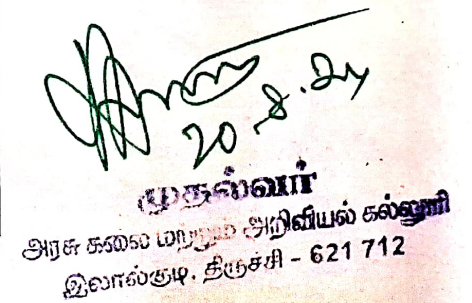 20.8.24
முதல்வர்
அரசு கலை மற்றும் அறிவியல் கல்லூரி
இலால்குடி. திருச்சி - 621 712